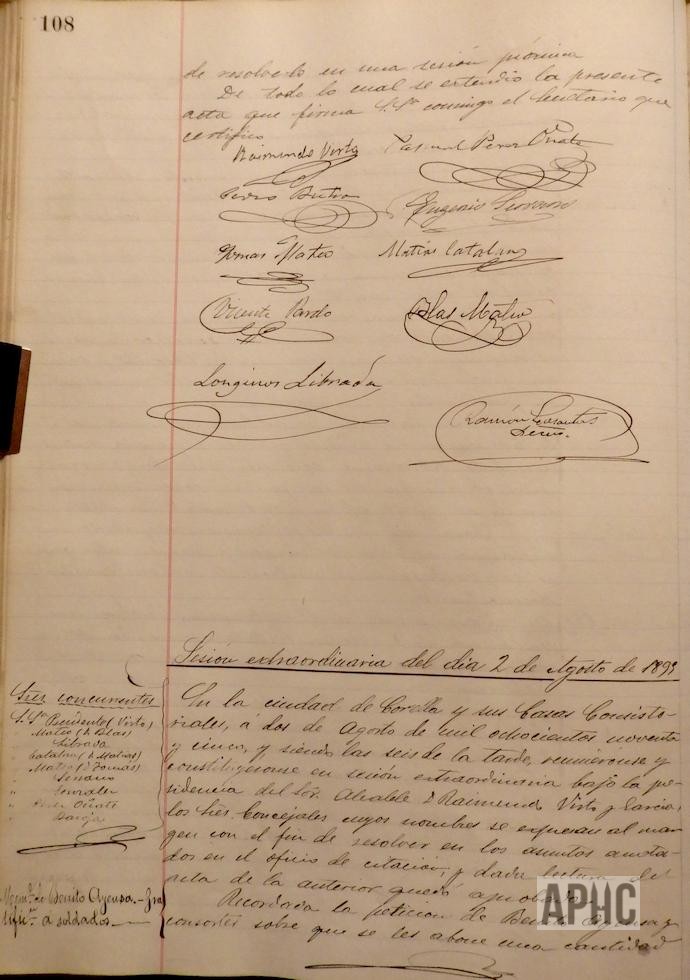 108
de resolverlo en una sesión próxima
De todo lo cual se extendio la presente
acta que firma S.Sª conmigo el Secretario que
certifico
Raimundo Virto
Pascual Perez Oñate
Pedro
Eugenio Serrano
Tomas Mateo
Matías Catalan
Vicente Pardo
Blas Mateo
Longinos Librada
Ramón
Srio.
Sesión extraordinaria del dia 2 de Agosto de 1895
Sres concurrentes
S.Sª Presidente (Virto)
Mateo (D. Blas)
" Librada
Catalan (D. Matías)
" Mateo (D. Tomás)
" Serrano
" Gonzalez
" Perez Oñate
"
En la ciudad de Corella y sus Casas Consisto-
riales, á dos de Agosto de mil ochocientos noventa
y cinco, y siendo las seis de la tarde, reuniéronse y
constituyeronse en sesión extraordinaria bajo la pre-
sidencia del Sor. Alcalde D. Raimundo Virto y Garcia,
los Sres. Concejales cuyos nombres se expresan al mar-
gen con el fin de resolver en los asuntos anota-
dos en el oficio de citación, y dada lectura del
acta de la anterior quedó aprobada
de Benito Ayensa.-
a soldados.
Recordada la petición de Benito Ayensa y
consortes sobre que se les abone una cantidad
APHC